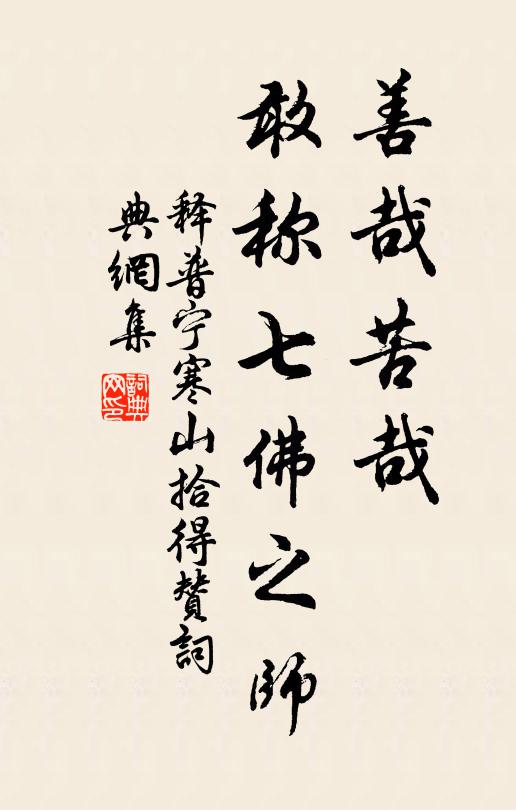 善哉苦哉
敢称七佛之師
释普宁寒山拾得贊詞
典網集
詞典
网印